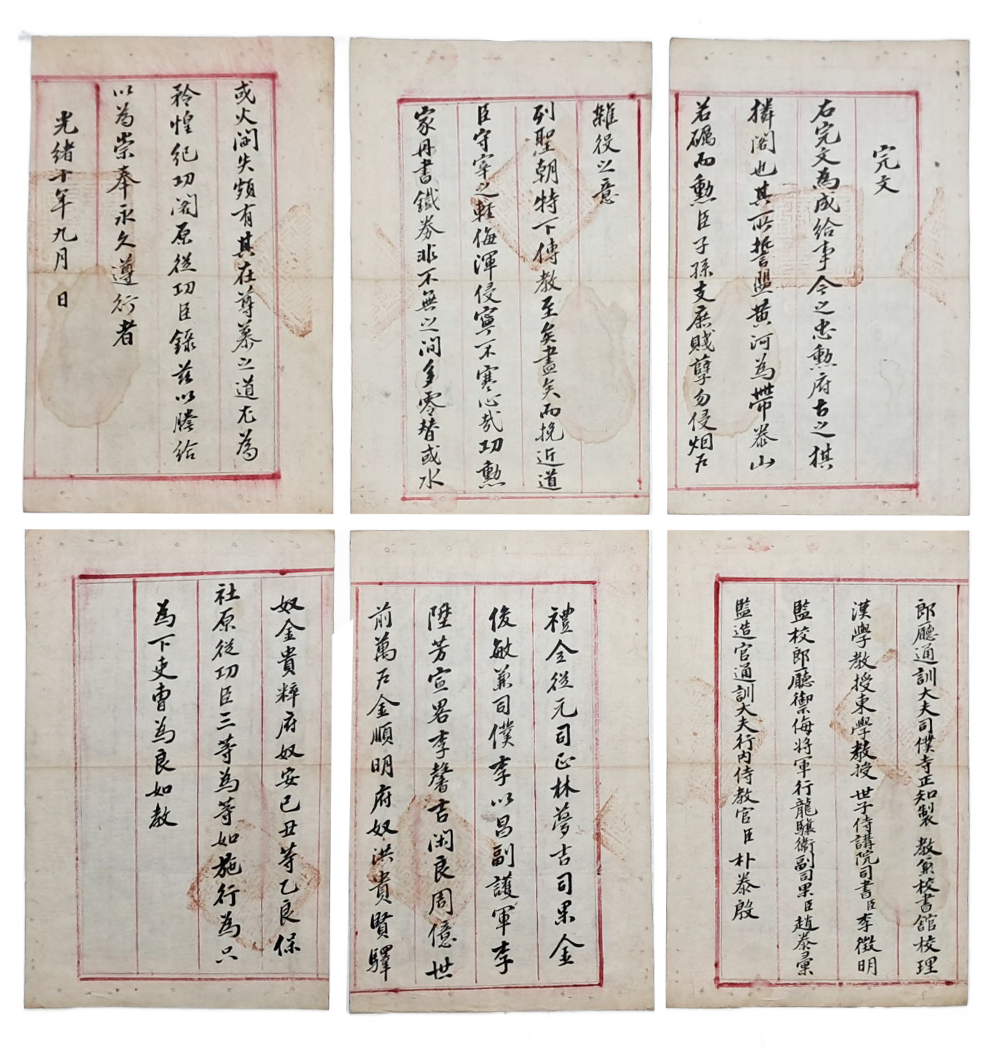 完文
右完文為成給事今之忠勳府古之棋
獜閣也其所誓盟黃河為帶泰山
若礪而勳臣子孫支庶賤孽勿侵烟戶
雜役之意
列聖朝特下傳教至矣盡矣而挽近道
臣守宰之輕侮渾侵寧不寒心哉功勳
家丹書鐵券非不無之間多零替或水
或火闕失頻有其在尊慕之道尤為
矜惶紀功閣原從功臣錄玆以謄給
以為崇奉永久遵行者
光緖十年九月 日
郎廳通訓大夫司僕寺正知製 教兼校書館校理
漢學教授東學教授 世子侍講院司書臣李徵明
監校郎廳禦侮將軍行龍驤衛副司果臣趙泰彙
監造官通訓大夫行內侍教官臣朴泰殷
禮仝從元司正林夢吉司果金
俊敏兼司僕李以昌副護軍李
陞芳宣畧李馨吉閑良周億世
前萬戶金順明府奴洪貴賢驛
奴金貴粹府奴安已丑等乙良保
社原從功臣三等為等如施行為只
為下吏曹為良如敎